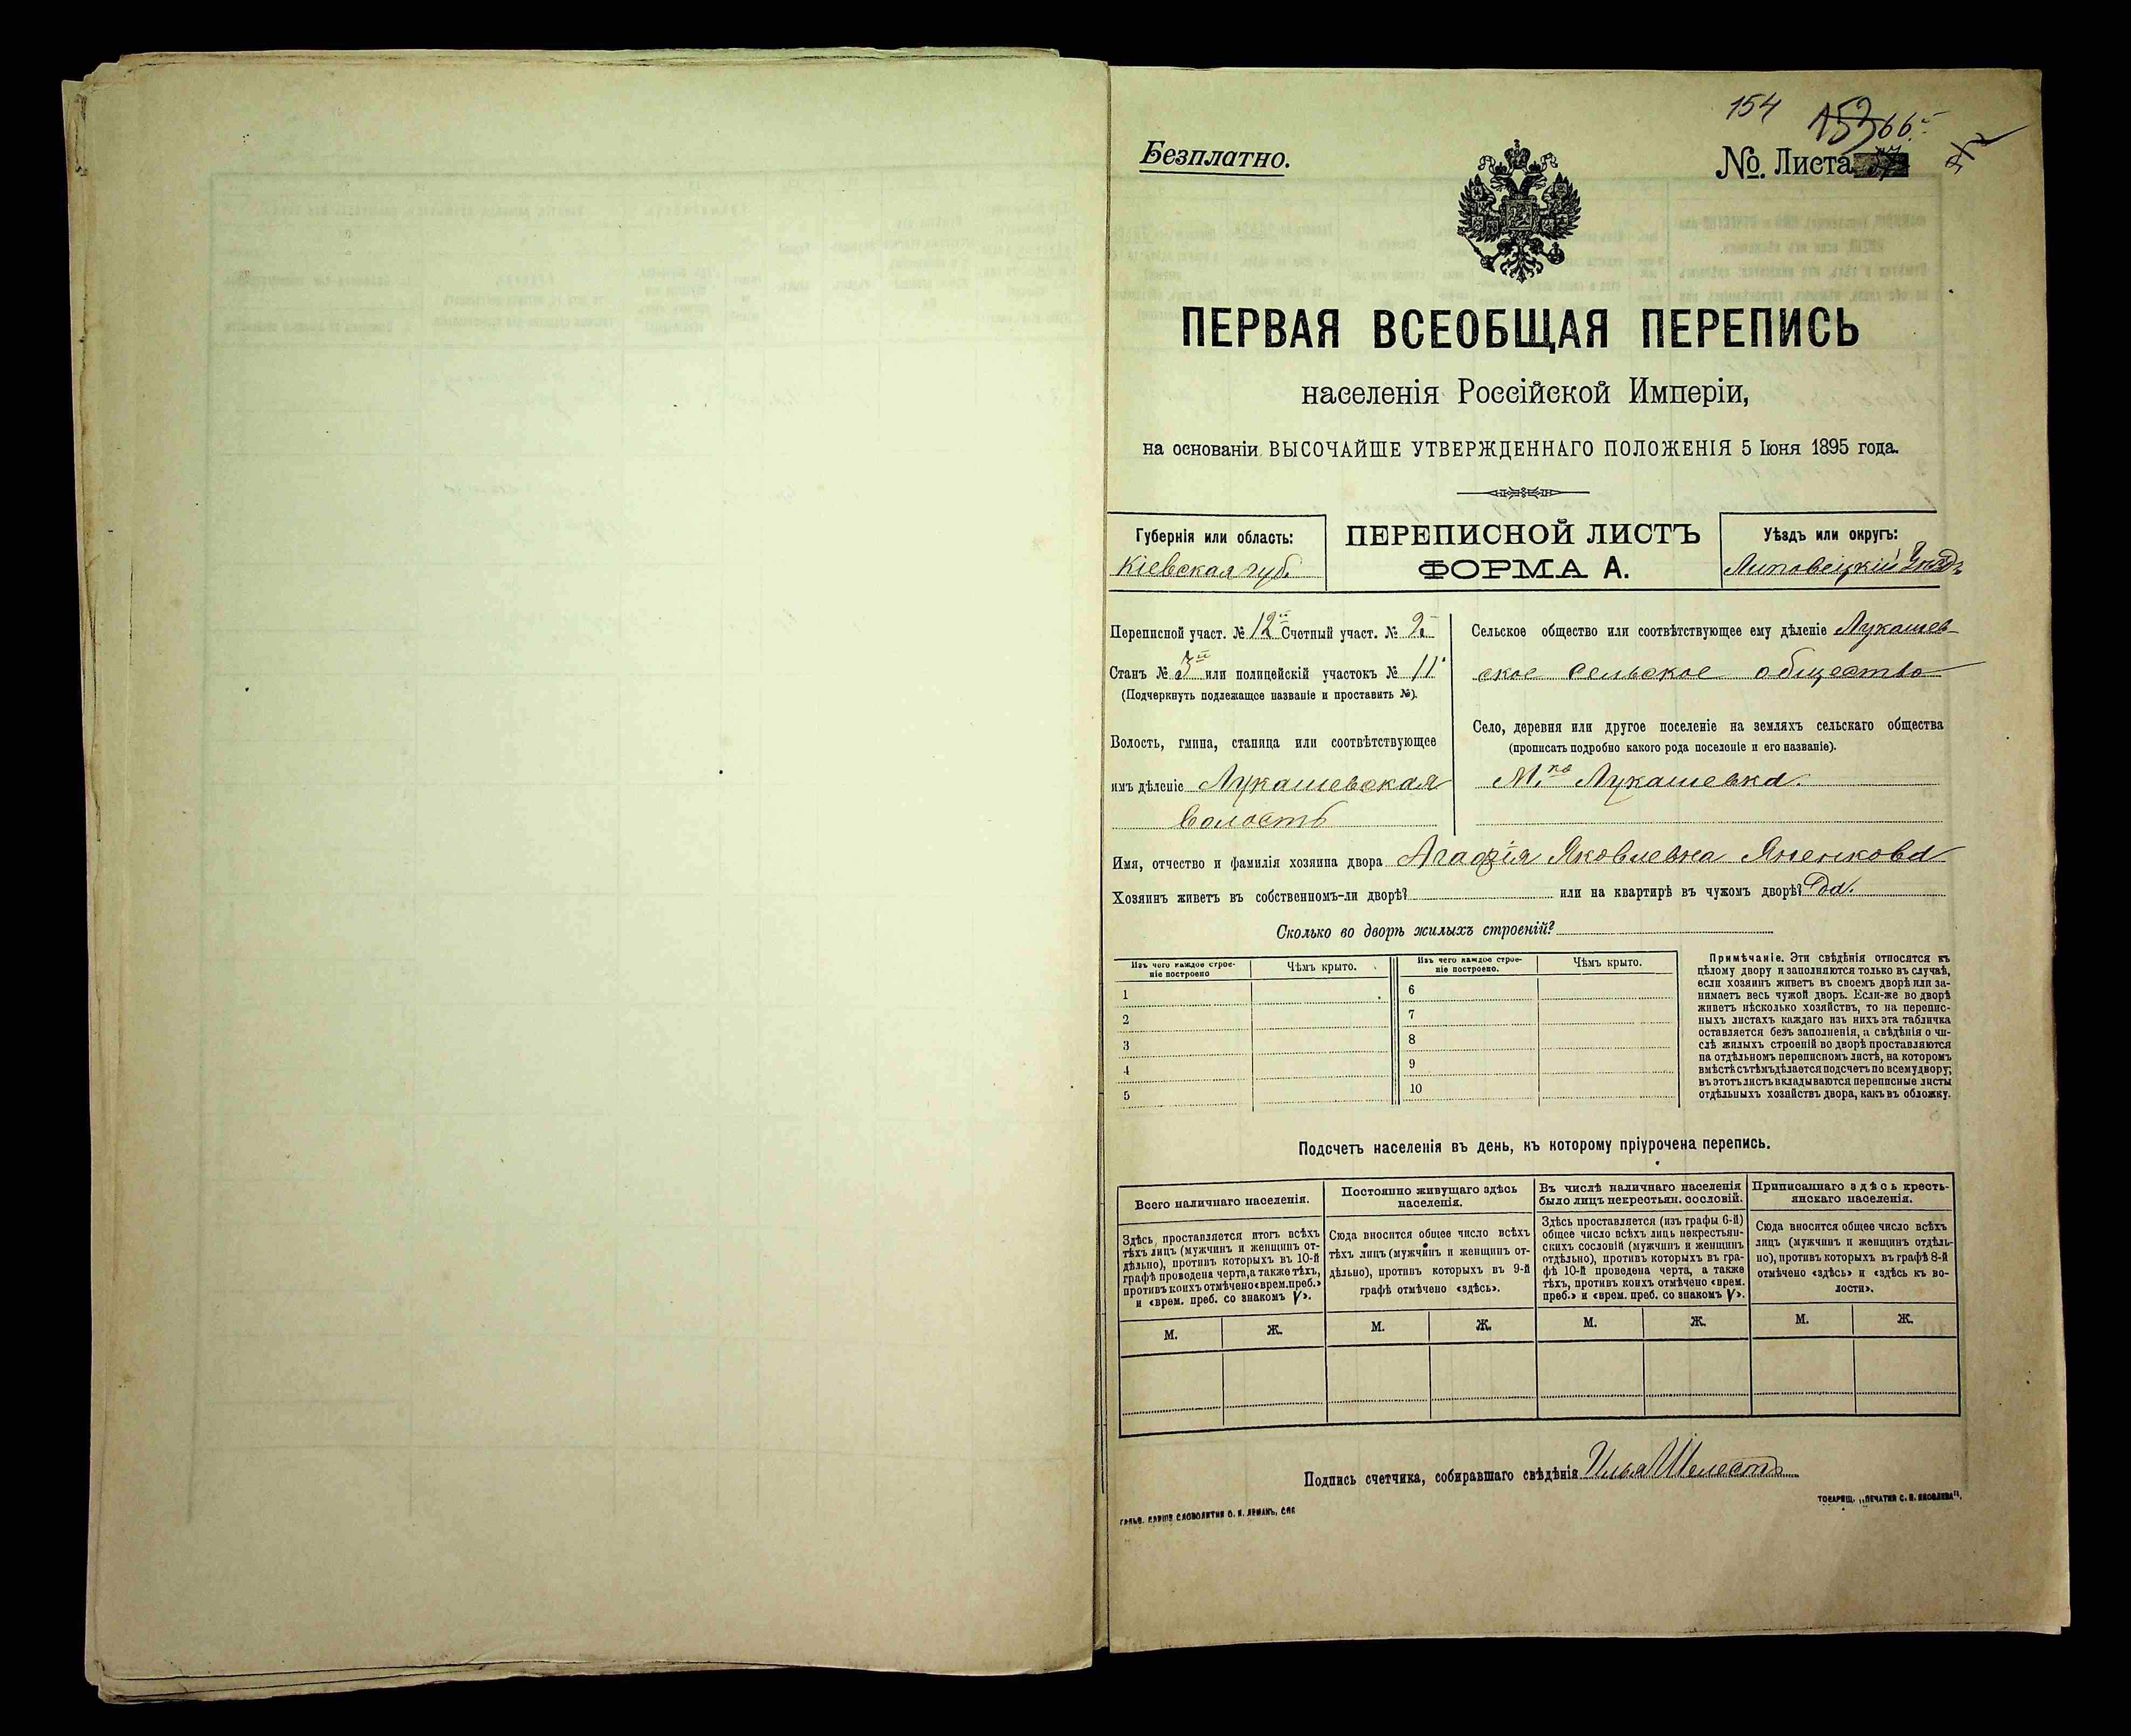 154
153 66
Безплатно.
№. Листа 37
ПЕРВАЯ ВСЕОБЩАЯ ПЕРЕПИСЬ
населенія Россійской Имперіи,
на основаніи ВЫСОЧАЙШЕ УТВЕРЖДЕННАГО ПОЛОЖЕНІЯ 5 Іюня 1895 года.
Губернія или область:
Кіевская губ.
ПЕРЕПИСНОЙ ЛИСТЪ
ФОРМА А.
Уѣздъ или округъ:
Липовецкій Уѣздъ
Переписной участ. № 12й Счетный участ. № 2й
Станъ № 3й или полицейскій участокъ № 11
(Подчеркнуть подлежащее названіе и проставить №).
Волость, гмина, станица или соотвѣтствующее
имъ дѣленіе Лукашевская
Волость
Сельское общество или соотвѣтствующее ему дѣленіе Лукашев-
ское сельское общество
Село, деревня или другое поселеніе на земляхъ сельскаго общества
(прописать подробно какого рода поселеніе и его названіе).
М.ко Лукашевка.
Имя, отчество и фамилія хозяина двора Агафія Яковлевна Яненкова
Хозяинъ живетъ въ собственномъ-ли дворѣ? или на квартирѣ въ чужомъ дворѣ? Да.
Сколько во дворѣ жилыхъ строеній?
Изъ чего каждое строе-
ніе построено
Чѣмъ крыто.
Изъ чего каждое строе-
ніе построено.
Чѣмъ крыто.
1 6
2 7
3 8
4 9
5 10
Примѣчаніе. Эти свѣдѣнія относятся къ
цѣлому двору и заполняются только въ случаѣ,
если хозяинъ живетъ въ своемъ дворѣ или за-
нимаетъ весь чужой дворъ. Если-же во дворѣ
живетъ нѣсколько хозяйствъ, то на перепис-
ныхъ листахъ каждаго изъ нихъ эта табличка
оставляется безъ заполненія, а свѣдѣнія о чи-
слѣ жилыхъ строеній во дворѣ проставляются
на отдѣльномъ переписномъ листѣ, на которомъ
вмѣстѣ съ тѣмъ дѣлается подсчетъ по всему двору;
въ этотъ листъ вкладываются переписные листы
отдѣльныхъ хозяйствъ двора, какъ въ обложку.
Подсчетъ населенія въ день, къ которому пріурочена перепись.
Всего наличнаго населенія.
Здѣсь проставляется итогъ всѣхъ
тѣхъ лицъ (мужчинъ и женщинъ от-
дѣльно), противъ которыхъ въ 10-й
графѣ проведена черта, а также тѣхъ,
противъ коихъ отмѣчено «врем. преб.»
и «врем. преб. со знакомъ V».
Постоянно живущаго здѣсь
населенія.
Сюда вносится общее число всѣхъ
тѣхъ лицъ (мужчинъ и женщинъ от-
дѣльно), противъ которыхъ въ 9-й
графѣ отмѣчено «здѣсь».
Въ числѣ наличнаго населенія
было лицъ некрестьян. сословій.
Здѣсь проставляется (изъ графы 6-й)
общее число всѣхъ лицъ некрестьян-
скихъ сословій (мужчинъ и женщинъ
отдѣльно), противъ которыхъ въ гра-
фѣ 10-й проведена черта, а также
тѣхъ, противъ коихъ отмѣчено «врем.
преб.» и «врем. преб. со знакомъ V».
Приписаннаго здѣсь кресть-
янскаго населенія.
Сюда вносится общее число всѣхъ
лицъ (мужчинъ и женщинъ отдѣль-
но), противъ которыхъ въ графѣ 8-й
отмѣчено «здѣсь» и «здѣсь къ во-
лости».
М. Ж. М. Ж. М. Ж. М. Ж.
Подпись счетчика, собиравшаго свѣдѣнія Илья Шелестъ
СЛОВОЛИТНИ О. И. ЛЕМАНЪ, СПБ
ТОВАРИЩ. „ПЕЧАТНЯ С. П. ЯКОВЛЕВА".